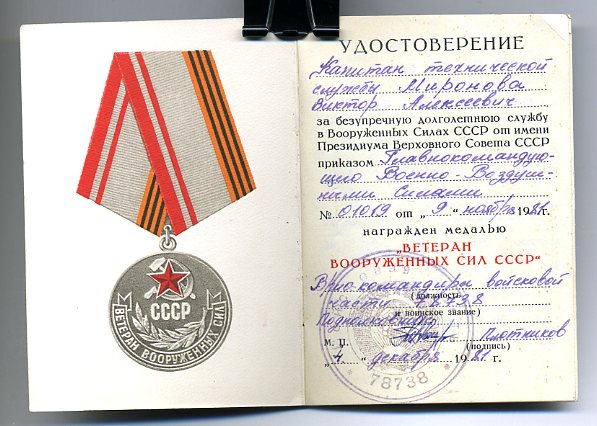 СССР
ВЕТЕРАН ВООРУЖЕННЫХ СИЛ
УДОСТОВЕРЕНИЕ
Капитан технической
службы Миронова
Виктор Алексеевич
за безупречную долголетнюю службу
в Вооруженных Силах СССР от имени
Президиума Верховного Совета СССР
приказом Главнокомандую-
щего Военно-Воздуш-
ными Силами
№ 01019 от „9“ ноября 1981г.
награжден медалью
„ВЕТЕРАН
ВООРУЖЕННЫХ СИЛ СССР“
Врио командира войсковой
части 78738
(должность
и воинское звание)
Подполковник
Плотников
М. П.
(подпись)
„4“ декабря 1981г.
78738